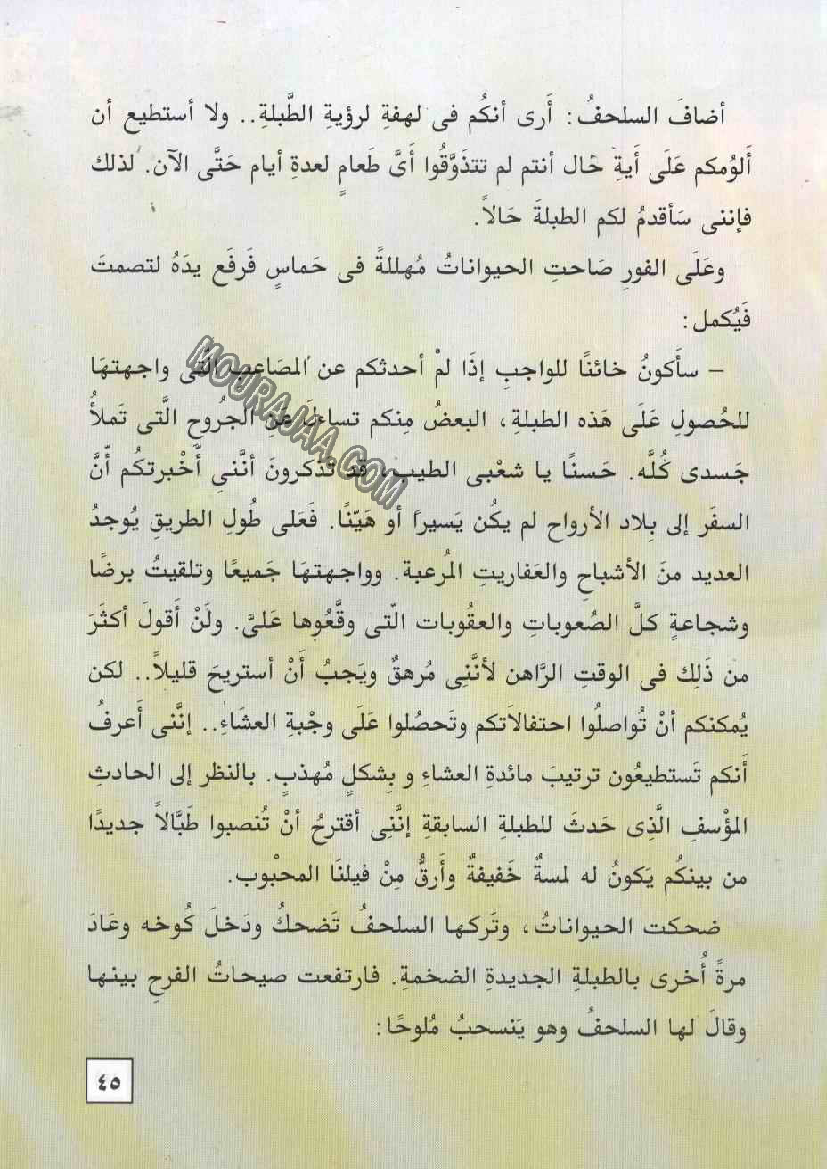 أضافَ السلحفُ: أَرى أنكُم فى لهفةِ لرؤيةِ الطَّبلةِ.. ولا أستطيع أن
أَلوُمكم عَلَى أَيةِ حَال أنتم لم تتذَوَّقُوا أىَّ طَعامٍ لعدةِ أيام حَتَّى الآن. لذلك
فإننى سَأقدمُ لكم الطبلةَ حَالاً.
وعَلَى الفورِ صَاحتِ الحيواناتُ مُهللةً فى حَماسٍ فَرفَع يدَهُ لتصمتَ
فَيُكمل:
– سأَكونُ خائنًا للواجبِ إذَا لمْ أحدثكم عن المصَاعبِ الَّتى واجهتهَا
للحُصولِ عَلَى هَذه الطبلةِ، البعضُ مِنكم تساءلَ عَنِ الجُروحِ الَّتى تَملأُ
جَسدى كُلَّه. حَسنًا يا شعْبى الطيب، قَد تَذكرونَ أنَّنى أَخْبرتكُم أنَّ
السفَر إلى بِلاد الأرواح لم يكُن يَسيرًا أو هَيّنًا. فَعَلى طُولِ الطريقِ يُوجدُ
العديد منَ الأشباحِ والعَفاريتِ المُرعبة. وواجهتهَا جَميعًا وتلقيتُ برضًا
وشجاعةٍ كلَّ الصُعوباتِ والعقُوبات الّتى وقَّعُوها عَلىَّ. ولَنْ أَقولَ أكثَرَ
من ذَلِك فى الوقتِ الرَّاهن لأنَّنِى مُرهقٌ ويَجبُ أَنْ أستريحَ قليلاً.. لكن
يُمكنكم أنْ تُواصلُوا احتفالاَتكم وتَحصُلوا عَلَى وجْبةِ العشَاءِ.. إنَّنى أَعرفُ
أَنكم تَستطيعُون ترتيبَ مائدةِ العشاءِ و بِشكلٍ مُهذبٍ. بالنظر إلى الحادثِ
المؤْسفِ الَّذِى حَدثَ للطبلةِ السابقةِ إنَّنِى أقترحُ أنْ تُنصبوا طَبَّالاً جديدًا
من بينكُم يَكونُ له لمسةٌ خَفيفةٌ وأَرقُّ مِنْ فيلنَا المحبْوب.
ضحكت الحيواناتُ، وتَركها السلحفُ تَضحكُ ودَخلَ كُوخه وعَادَ
مرةً أُخرى بالطبلةِ الجديدةِ الضخمةِ. فارتفعت صيحاتُ الفرحِ بينها
وقالَ لها السلحفُ وهو يَنسحبُ مُلوحًا:
٤٥
MOURAJAA.COM